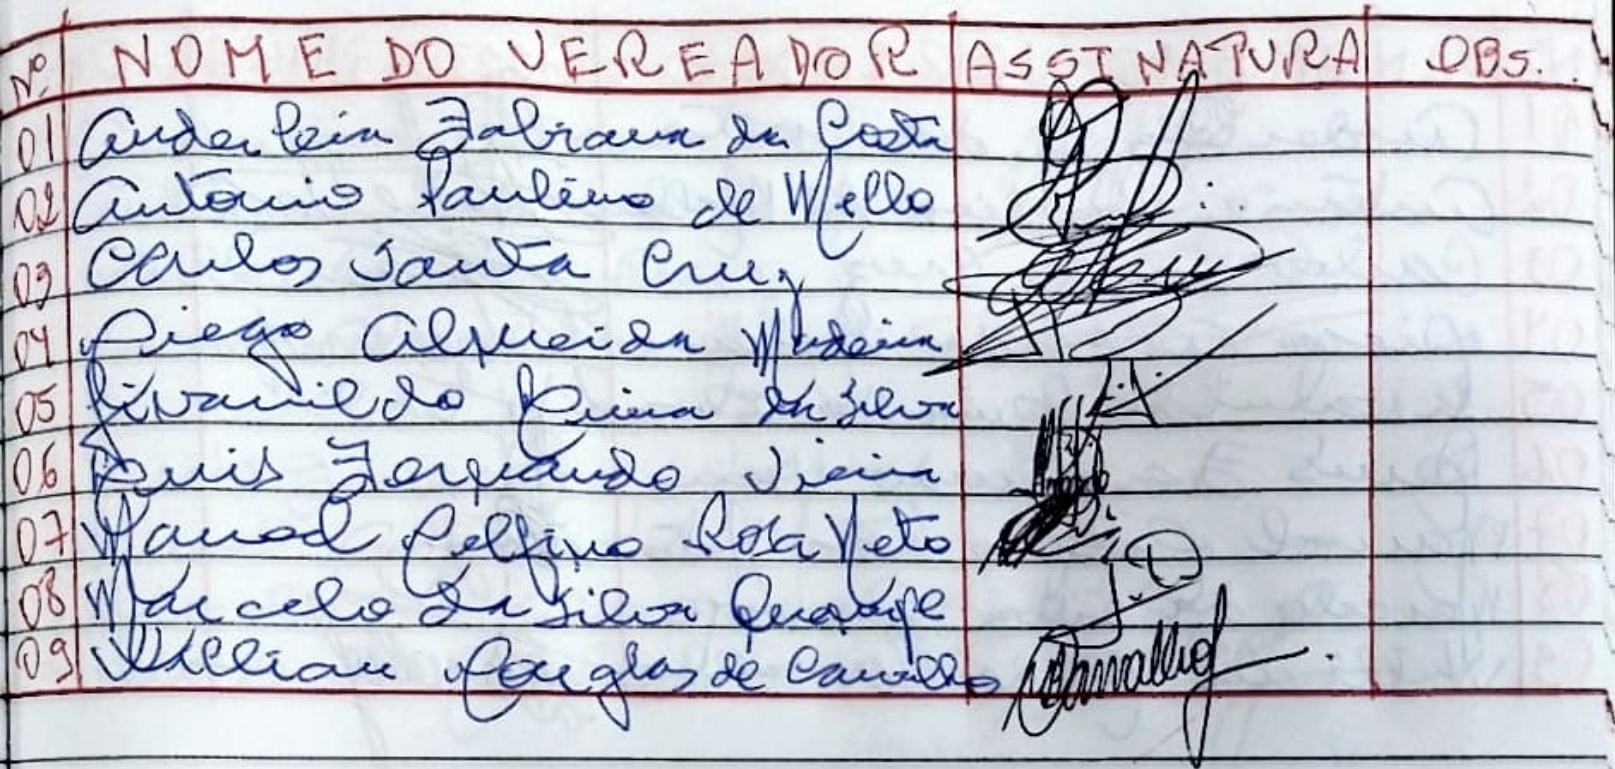 Nº NOME DO VEREADOR ASSINATURA OBS.
01 Anderleia Fabiana da Costa
02 Antonio Paulino de Mello
03 Carlos Santa Cruz
04 Diego Almeida Madeira
05 Givanildo da Silva
06 Luis Fernando Vieira
07 Manoel Delfino Rosa Neto
08 Marcelo da Silva
09 Willian Douglas de Carvalho Carvalho